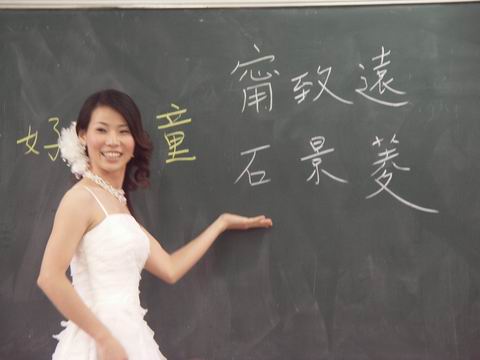 甯致遠
石景菱
好 童